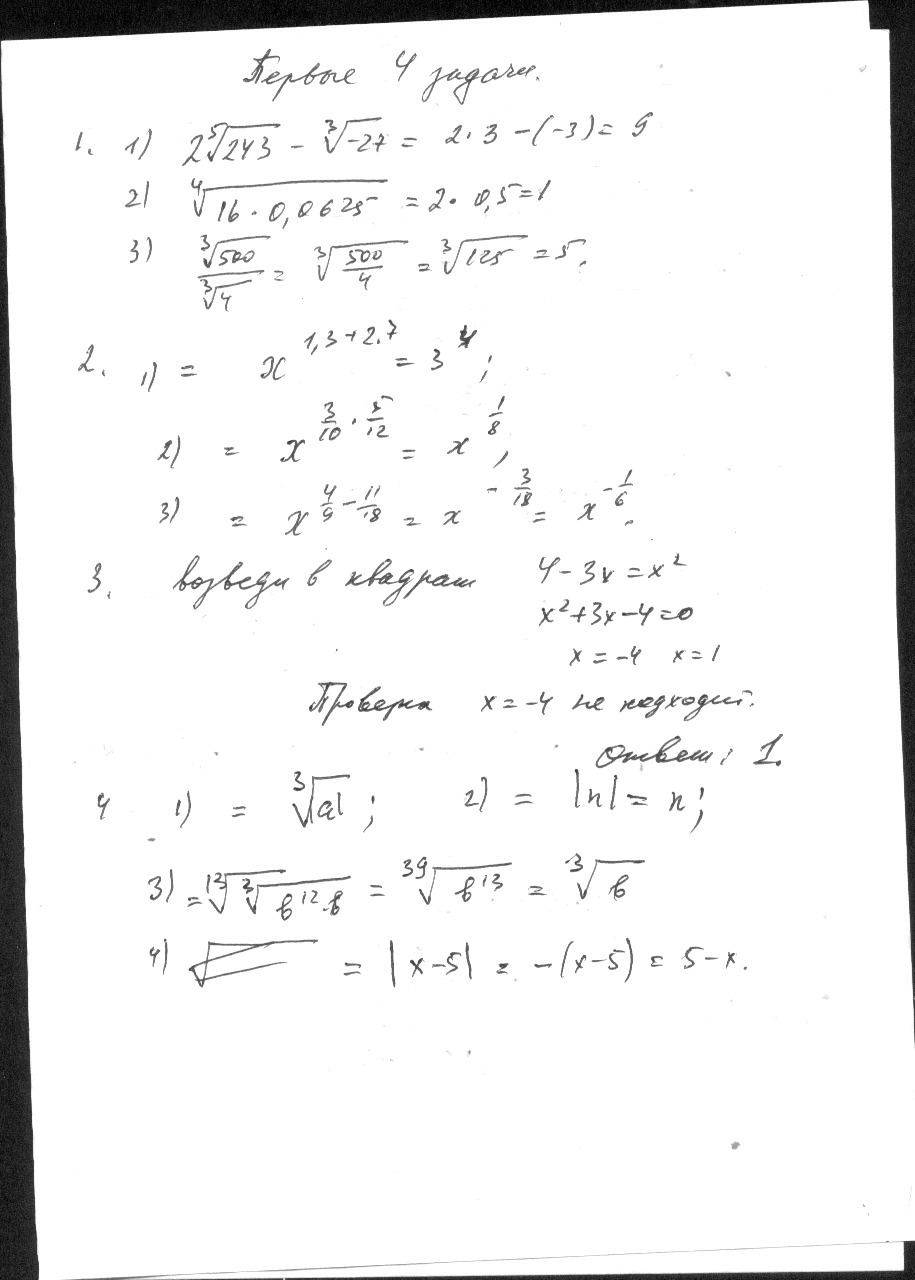 Первые 4 задачи.
1. 1) 2⁵√243 - ³√-27 = 2·3 -(-3)= 9
2) ⁴√16·0,0625 = 2·0,5=1
3) ³√500/³√4 = ³√(500/4) = ³√125 = 5.
2. 1) = x^(1,3+2.7) = 3⁴;
2) = x^(3/10 · 5/12) = x^(1/8),
3) = x^(4/9 - 11/18) = x^(-3/18) = x^(-1/6).
3. возведи в квадрат 4-3x=x²
x²+3x-4=0
x=-4 x=1
Проверка x=-4 не подходит.
Ответ: 1.
4 1) = ³√|a|; 2) = |n|= n;
3) = ¹³√³√b¹²·b = ³⁹√b¹³ = ³√b
4) = |x-5| = -(x-5) = 5-x.